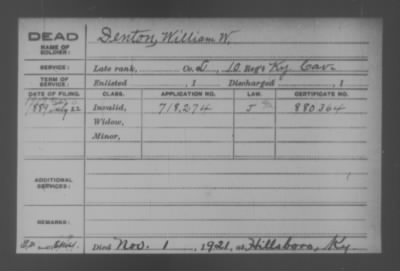 DEAD
NAME OF SOLDIER:
Denton, William W.
SERVICE:
Late rank, Co. D, 10 Reg't Ky. Cav.
TERM OF SERVICE:
Enlisted , 1 Discharged , 1
DATE OF FILING. CLASS. APPLICATION NO. LAW. CERTIFICATE NO.
1889 July 22 Invalid, 718,274 880364
Widow,
Minor,
ADDITIONAL SERVICES:
REMARKS:
Died Nov. 1, 1921, at Hillsboro, Ky